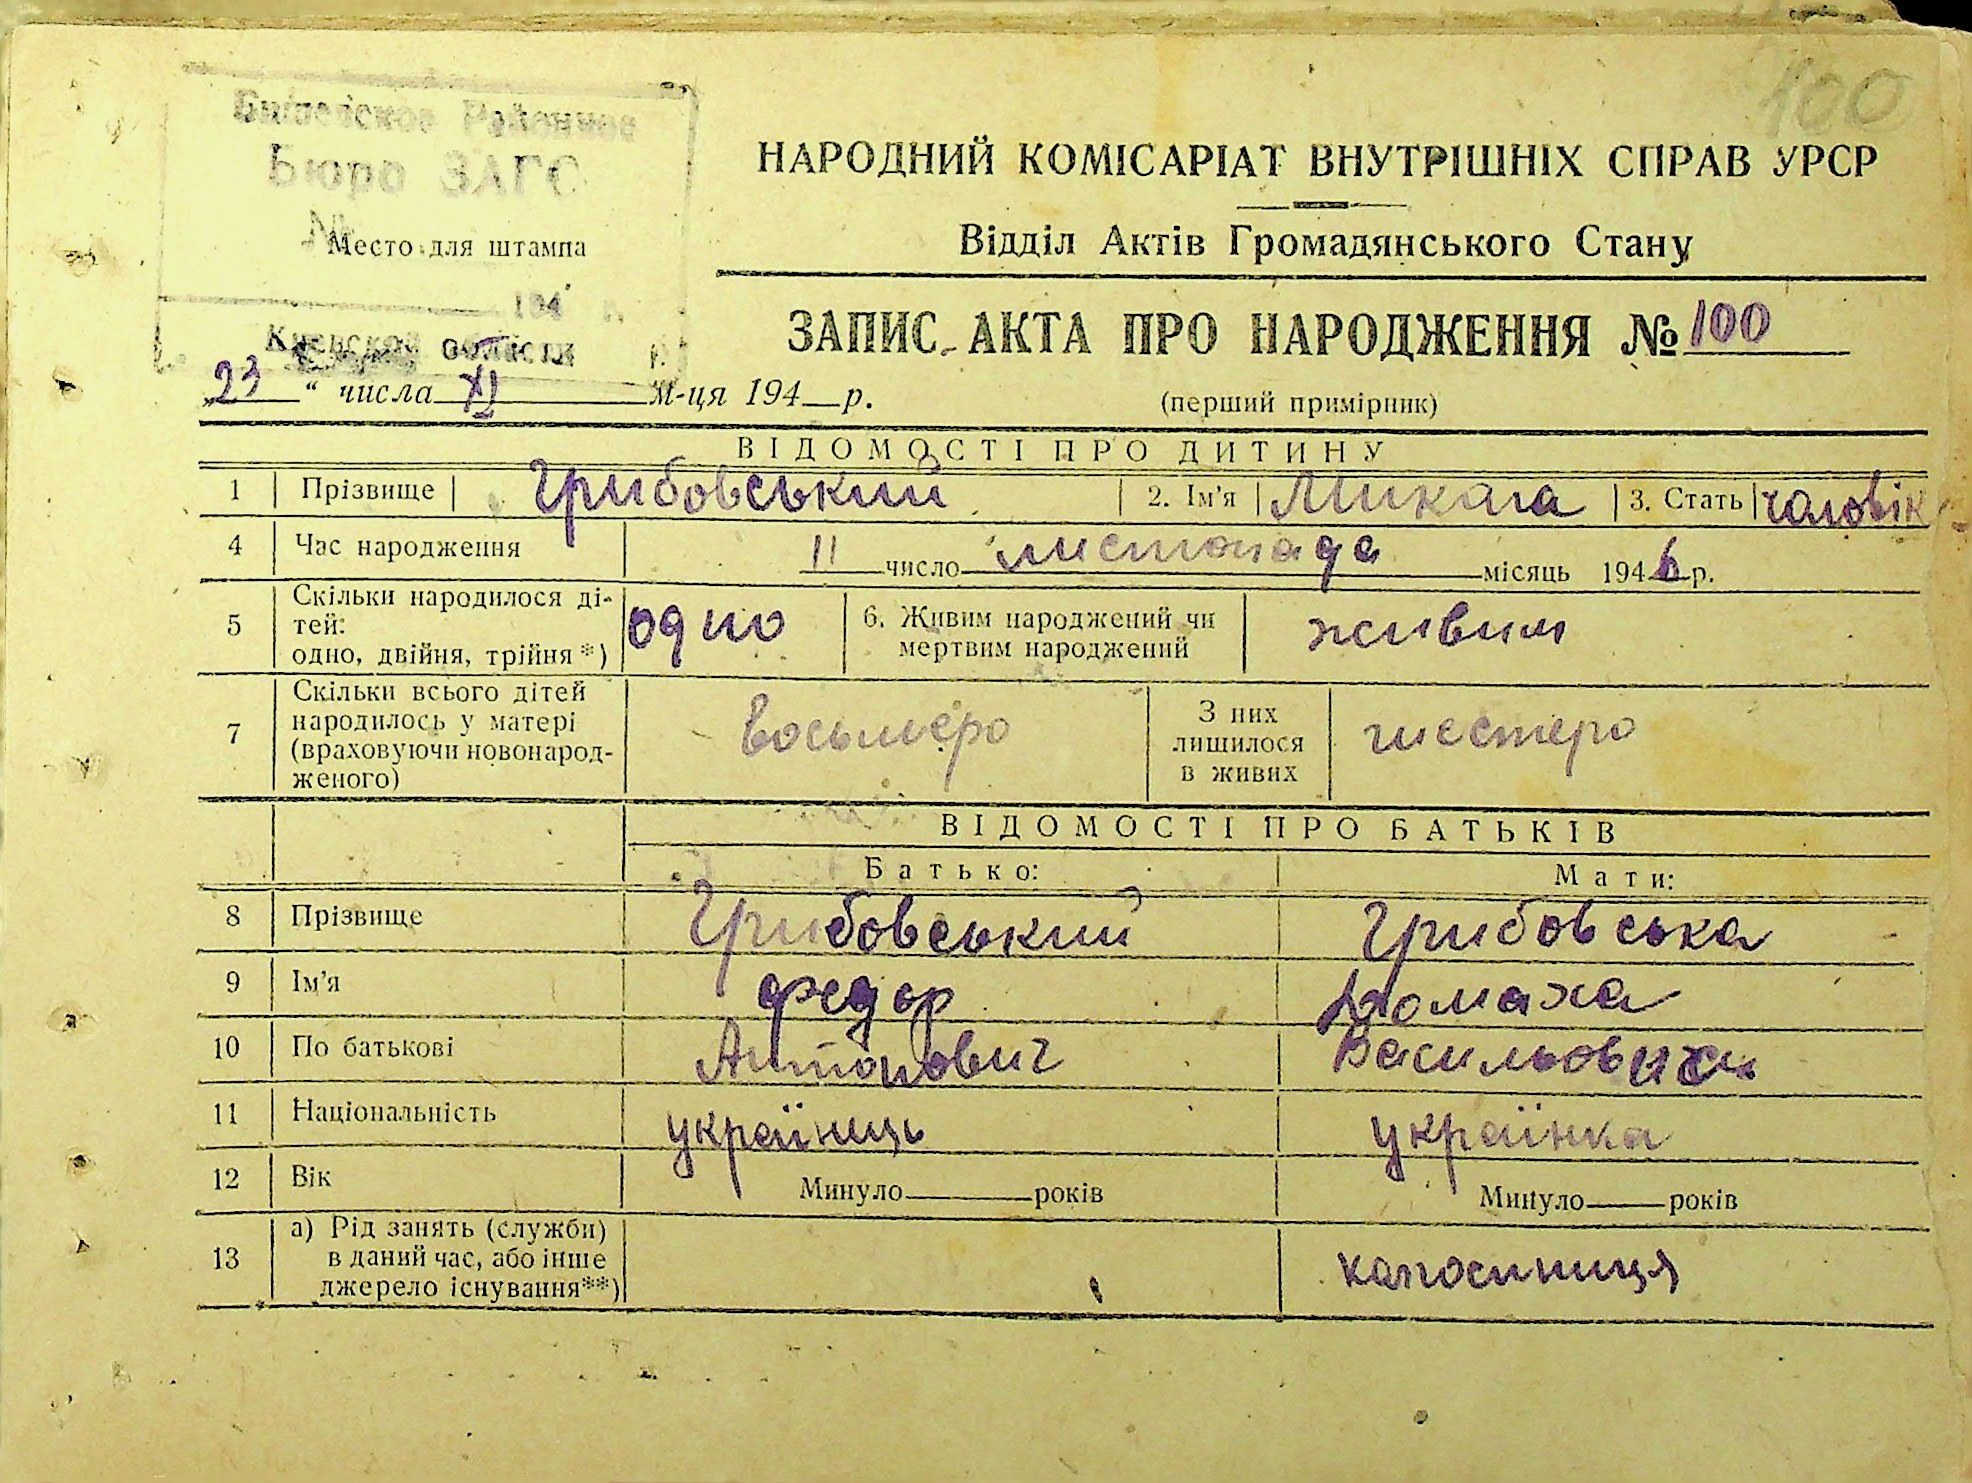 100
Районное
Бюро ЗАГС
№
Место для штампа
194 г.
Киевской области
НАРОДНИЙ КОМІСАРІАТ ВНУТРІШНІХ СПРАВ УРСР
Відділ Актів Громадянського Стану
ЗАПИС АКТА ПРО НАРОДЖЕННЯ № 100
„23“ числа XI м-ця 194 р.
(перший примірник)
ВІДОМОСТІ ПРО ДИТИНУ
1 Прізвище Грибовський 2. Ім'я Микола 3. Стать чоловік
4 Час народження 11 число листопада місяць 1946 р.
5 Скільки народилося ді-
тей:
одно, двійня, трійня *) одно 6. Живим народжений чи
мертвим народжений живим
7 Скільки всього дітей
народилось у матері
(враховуючи новонарод-
женого) восьмеро З них
лишилося
в живих шестеро
ВІДОМОСТІ ПРО БАТЬКІВ
Батько: Мати:
8 Прізвище Грибовський Грибовська
9 Ім'я Федор Домаха
10 По батькові Антонович Васильовна
11 Національність українець українка
12 Вік Минуло років Минуло років
13 а) Рід занять (служби)
в даний час, або інше
джерело існування**) колгоспниця